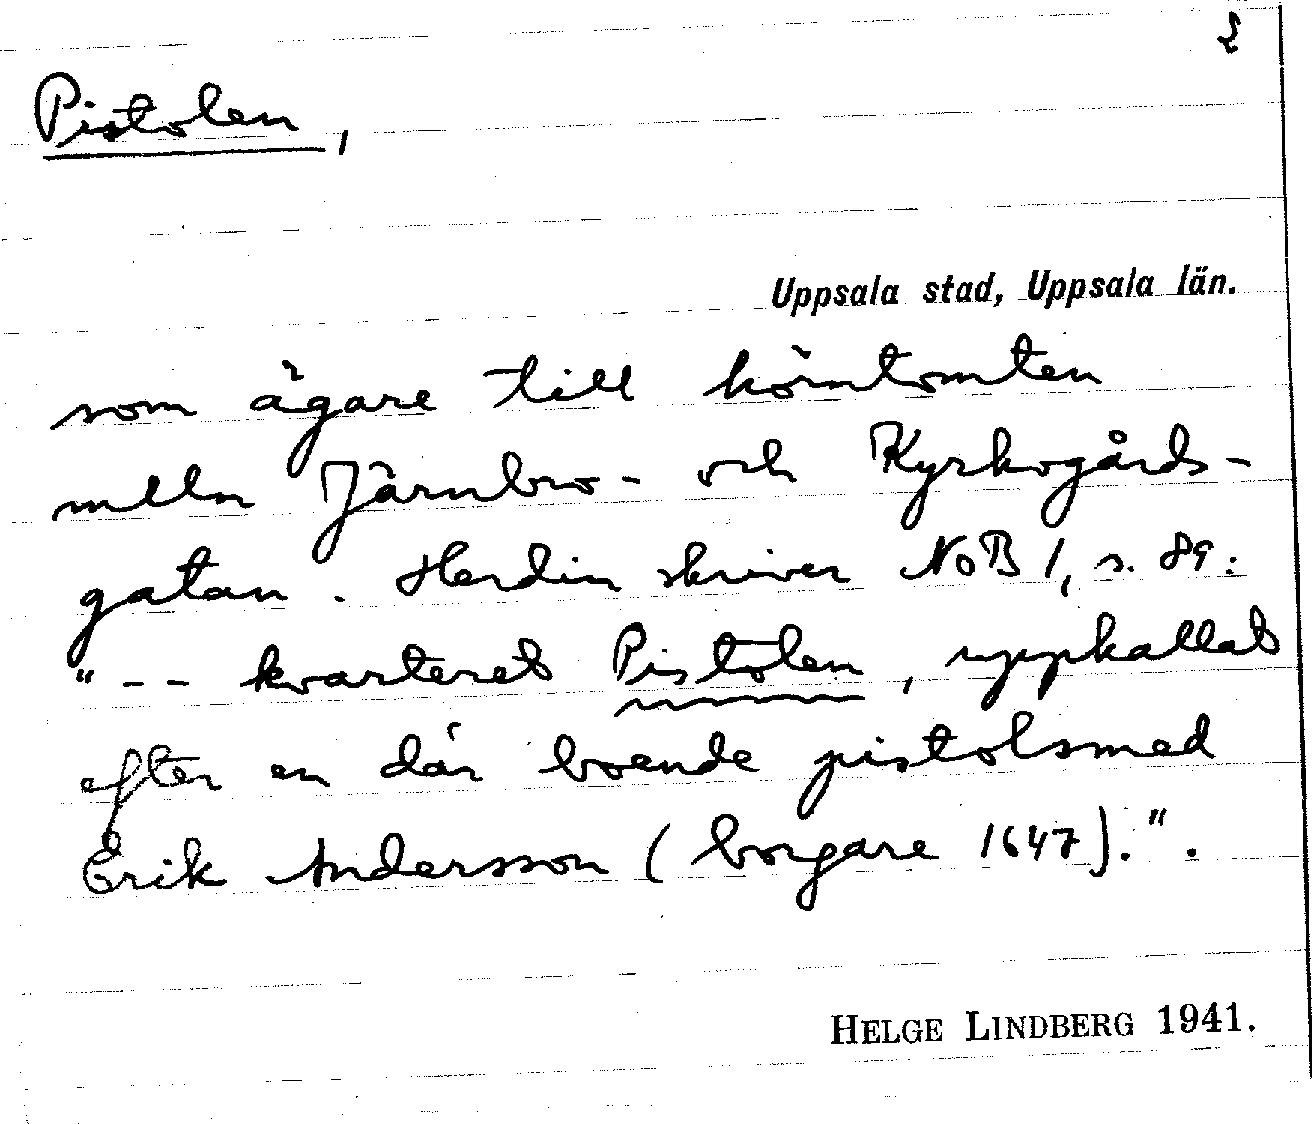 2
Pistolen,
Uppsala stad, Uppsala län.
som ägare till hörntomten
mlln Järnbro- och Kyrkogårds-
gatan. Herdin skriver NoB 1, s. 89:
"-- kvarteret Pistolen, uppkallat
efter en där boende pistolsmed
Erik Andersson (borgare 1647).".
HELGE LINDBERG 1941.